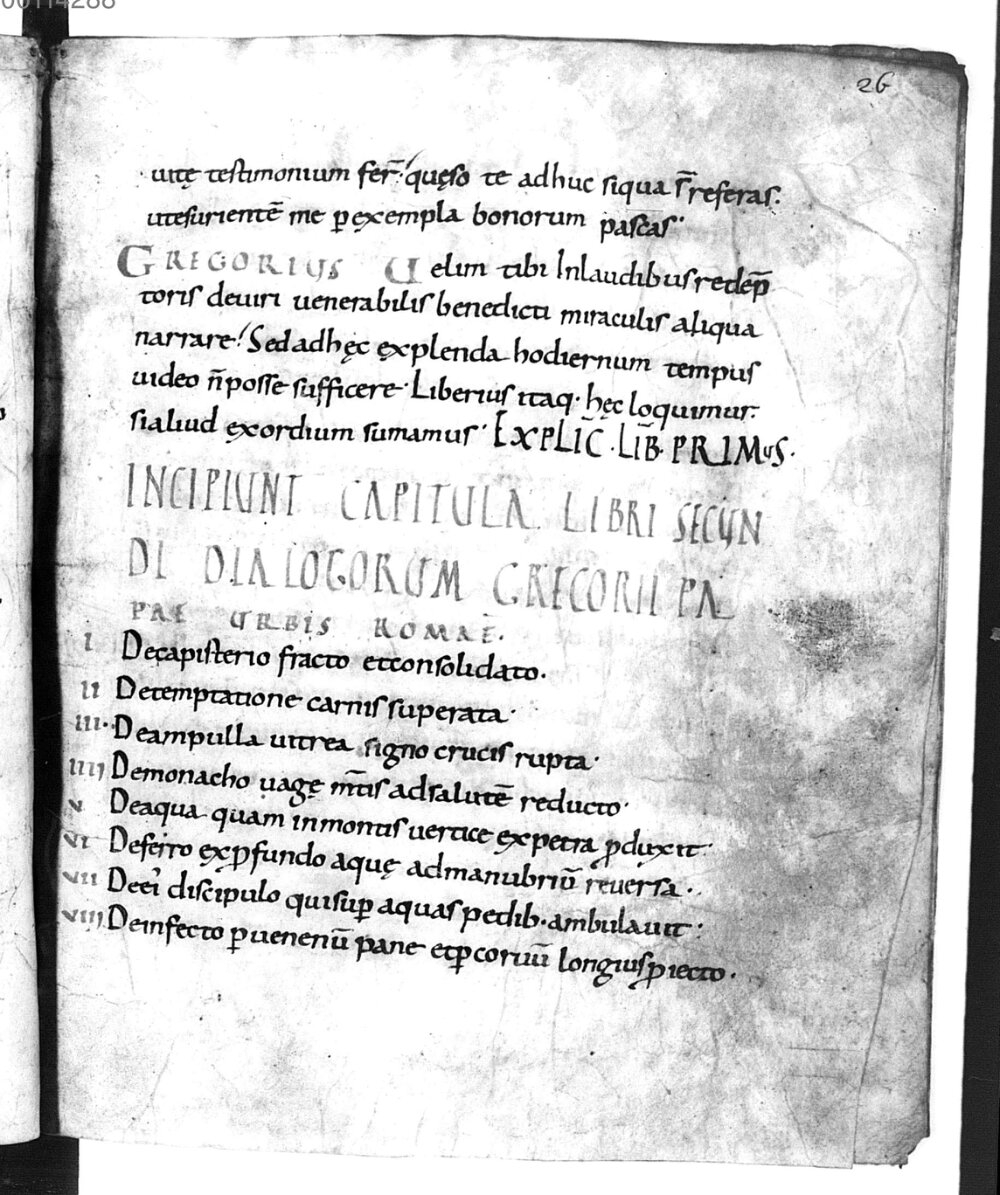 00114288
26
uitę testimonium fer̄. quęso te adhuc siqua s̄ referas.
utesurientē me p̲ exempla bonorum pascas.
GREGORIUS Uelim tibi Inlaudibus redēp
toris deuiri uenerabilis benedicti miraculis aliqua
narrare. Sed adhęc explenda hodiernum tempus
uideo n̄ posse sufficere. Liberius itaq. hęc loquimur.
sialiud exordium sumamus. EXPLIC̄. LIB̄ PRIMUS.
INCIPIUNT CAPITULA LIBRI SECUN
DI DIALOGORUM GREGORII PA
PAE URBIS ROMAE.
I Decapisterio fracto etconsolidato.
II Detemptatione carnis superata.
III. Deampulla uitrea signo crucis rupta.
IIII Demonacho uagę m̄tis adsalutē reducto.
V Deaqua quam inmontis uertice expetra p̲duxit.
VI Deferro exp̲fundo aquę admanubriū reuersa.
VII Deei discipulo quisup̲ aquas pedib. ambulauit.
VIII Deinfecto p̲ uenenū pane etp̲ coruū longius p̲iecto.